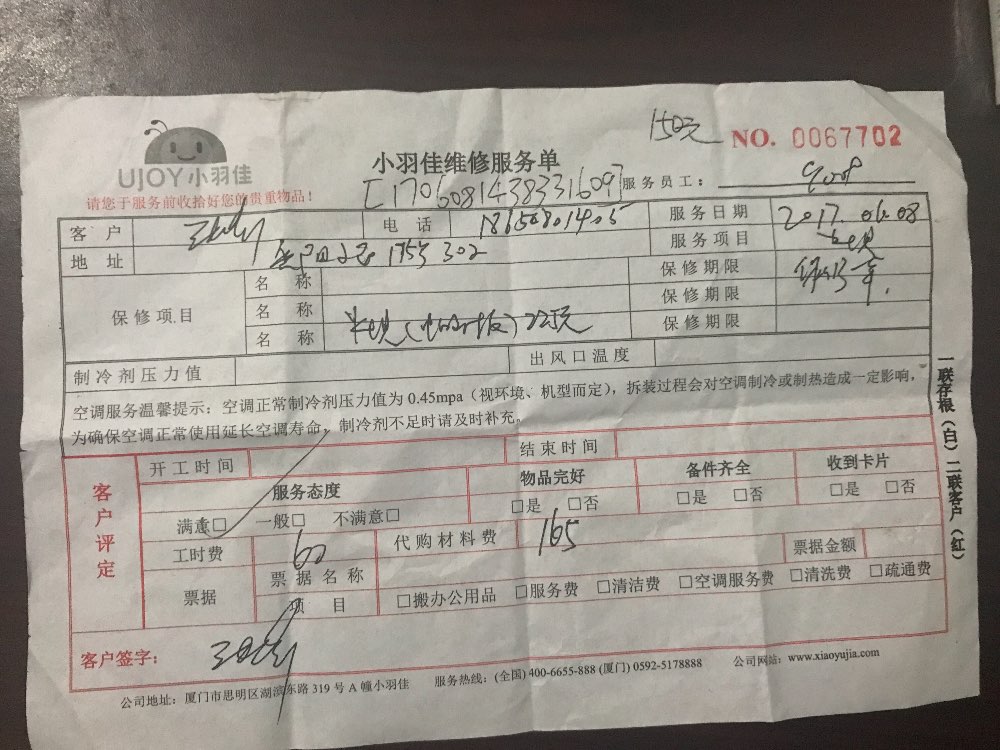 150元
NO. 0067702
UJOY小羽佳
小羽佳维修服务单
请您于服务前收拾好您的贵重物品!
[1706081438331609]
服务员工:
客户 电话 18650801405 服务日期 2017.06.08
地址 1753 302 服务项目
保修项目
名称 保修期限
名称 保修期限
名称 225元 保修期限
制冷剂压力值 出风口温度
空调服务温馨提示:空调正常制冷剂压力值为 0.45mpa(视环境、机型而定),拆装过程会对空调制冷或制热造成一定影响,
为确保空调正常使用延长空调寿命,制冷剂不足时请及时补充。
客户评定
开工时间 结束时间
服务态度 物品完好 备件齐全 收到卡片
满意□ 一般□ 不满意□ □是 □否 □是 □否 □是 □否
工时费 60 代购材料费 165
票据 票据名称 票据金额
项目 □搬办公用品 □服务费 □清洁费 □空调服务费 □清洗费 □疏通费
客户签字:
公司地址:厦门市思明区湖滨东路 319 号 A 幢小羽佳 服务热线:(全国) 400-6655-888 (厦门) 0592-5178888 公司网站:www.xiaoyujia.com
一联存根(白)二联客户(红)